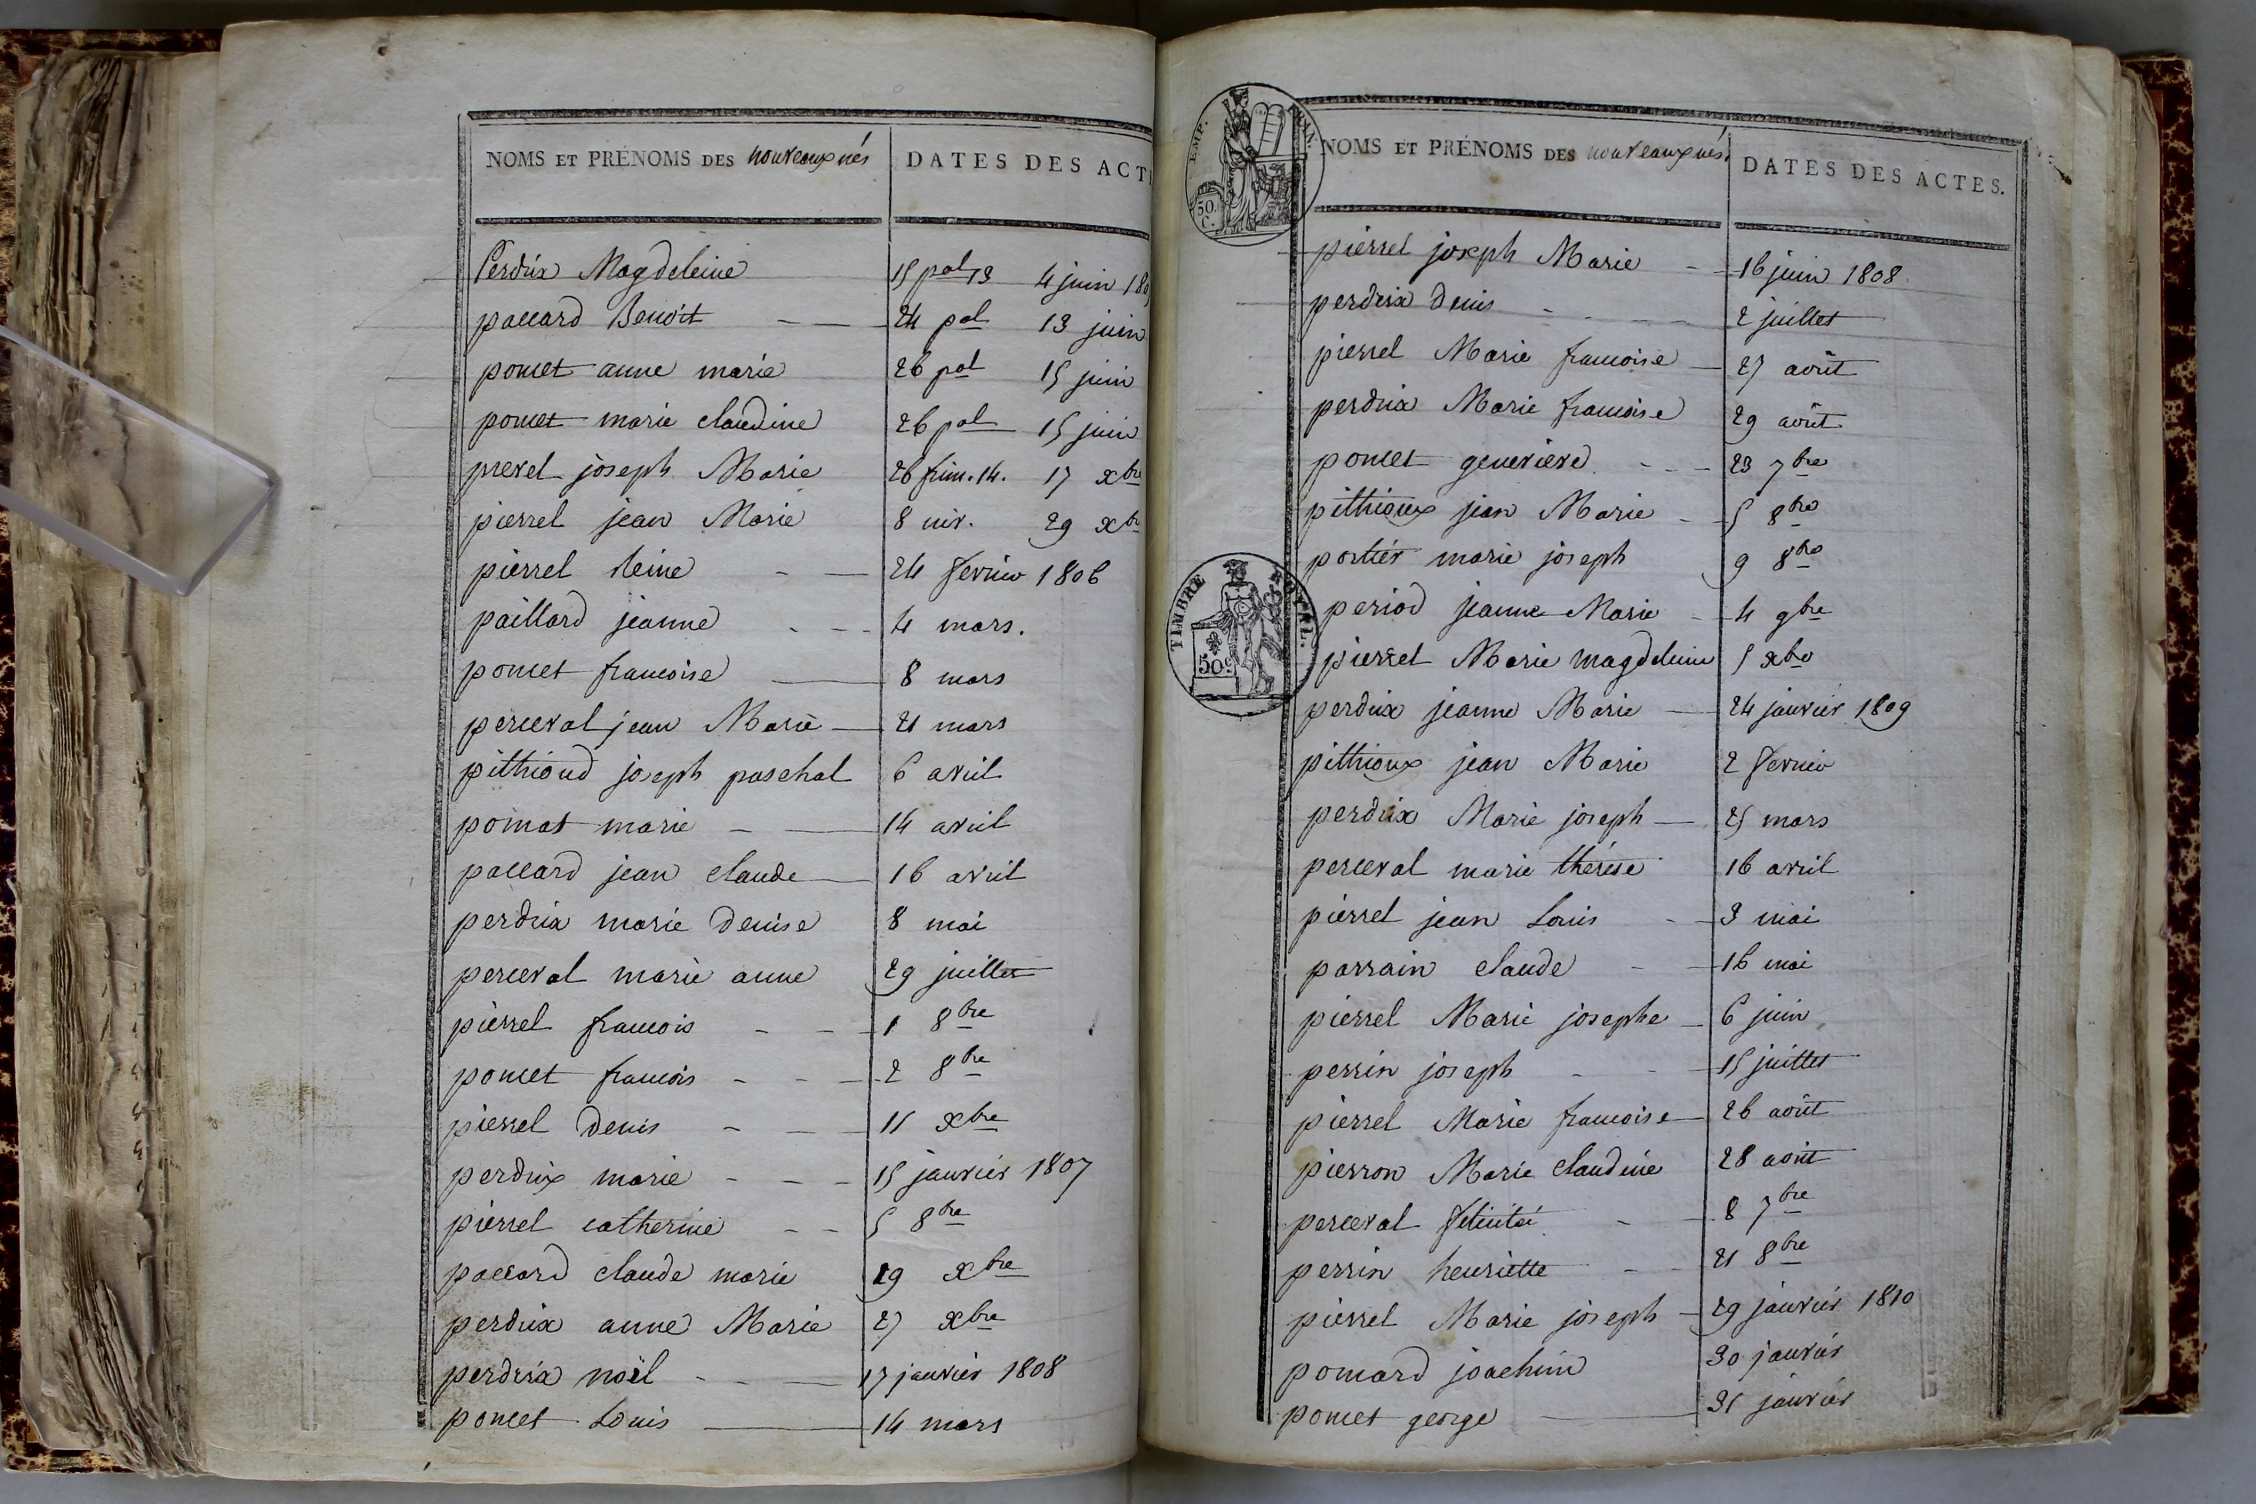 NOMS ET PRÉNOMS DES nouveaux nés
DATES DES ACT
Perdrix Magdeleine 15 pal 13 4 juin 180
paccard Benoit 24 pal 13 juin
poncet anne marie 26 pal 15 juin
poncet marie claudine 26 pal 15 juin
prevel joseph Marie 26 frim. 14. 17 xbre
pierrel jean Marie 8 niv. 29 xbre
pierrel reine 24 fevrier 1806
paillard jeanne 4 mars.
poncet francoise 8 mars
perceval jean Marie 21 mars
pithioud joseph paschal 6 avril
pomat marie 14 avril
paccard jean claude 16 avril
perdrix marie denise 8 mai
perceval marie anne 29 juillet
pierrel francois 1 8bre
poncet francois 2 8bre
pierrel denis 11 xbre
perdrix marie 15 janvier 1807
pierrel catherine 5 8bre
paccard claude marie 19 xbre
perdrix anne Marie 27 xbre
perdrix noël 17 janvier 1808
poncet Louis 14 mars
EMP. FRAN.
50. C.
NOMS ET PRÉNOMS DES nouveaux nés.
DATES DES ACTES.
pierrel joseph Marie 16 juin 1808
perdrix denis 2 juillet
pierrel Marie francoise 27 août
perdrix Marie francoise 29 août
poncet genevieve 23 7bre
pithioux jean Marie 5 8bre
portier marie joseph 9 8bre
TIMBRE ROYAL.
50c
period jeanne Marie 4 9bre
pierrel Marie magdeleine 5 xbre
perdrix jeanne Marie 24 janvier 1809
pithioux jean Marie 2 fevrier
perdrix Marie joseph 25 mars
perceval marie thérèse 16 avril
pierrel jean Louis 3 mai
parrain claude 16 mai
pierrel Marie josephe 6 juin
perrin joseph 15 juillet
pierrel Marie francoise 26 août
pierron Marie claudine 28 août
perceval felicité 8 7bre
perrin henriette 21 8bre
pierrel Marie joseph 29 janvier 1810
pomard joachim 30 janvier
poncet george 31 janvier